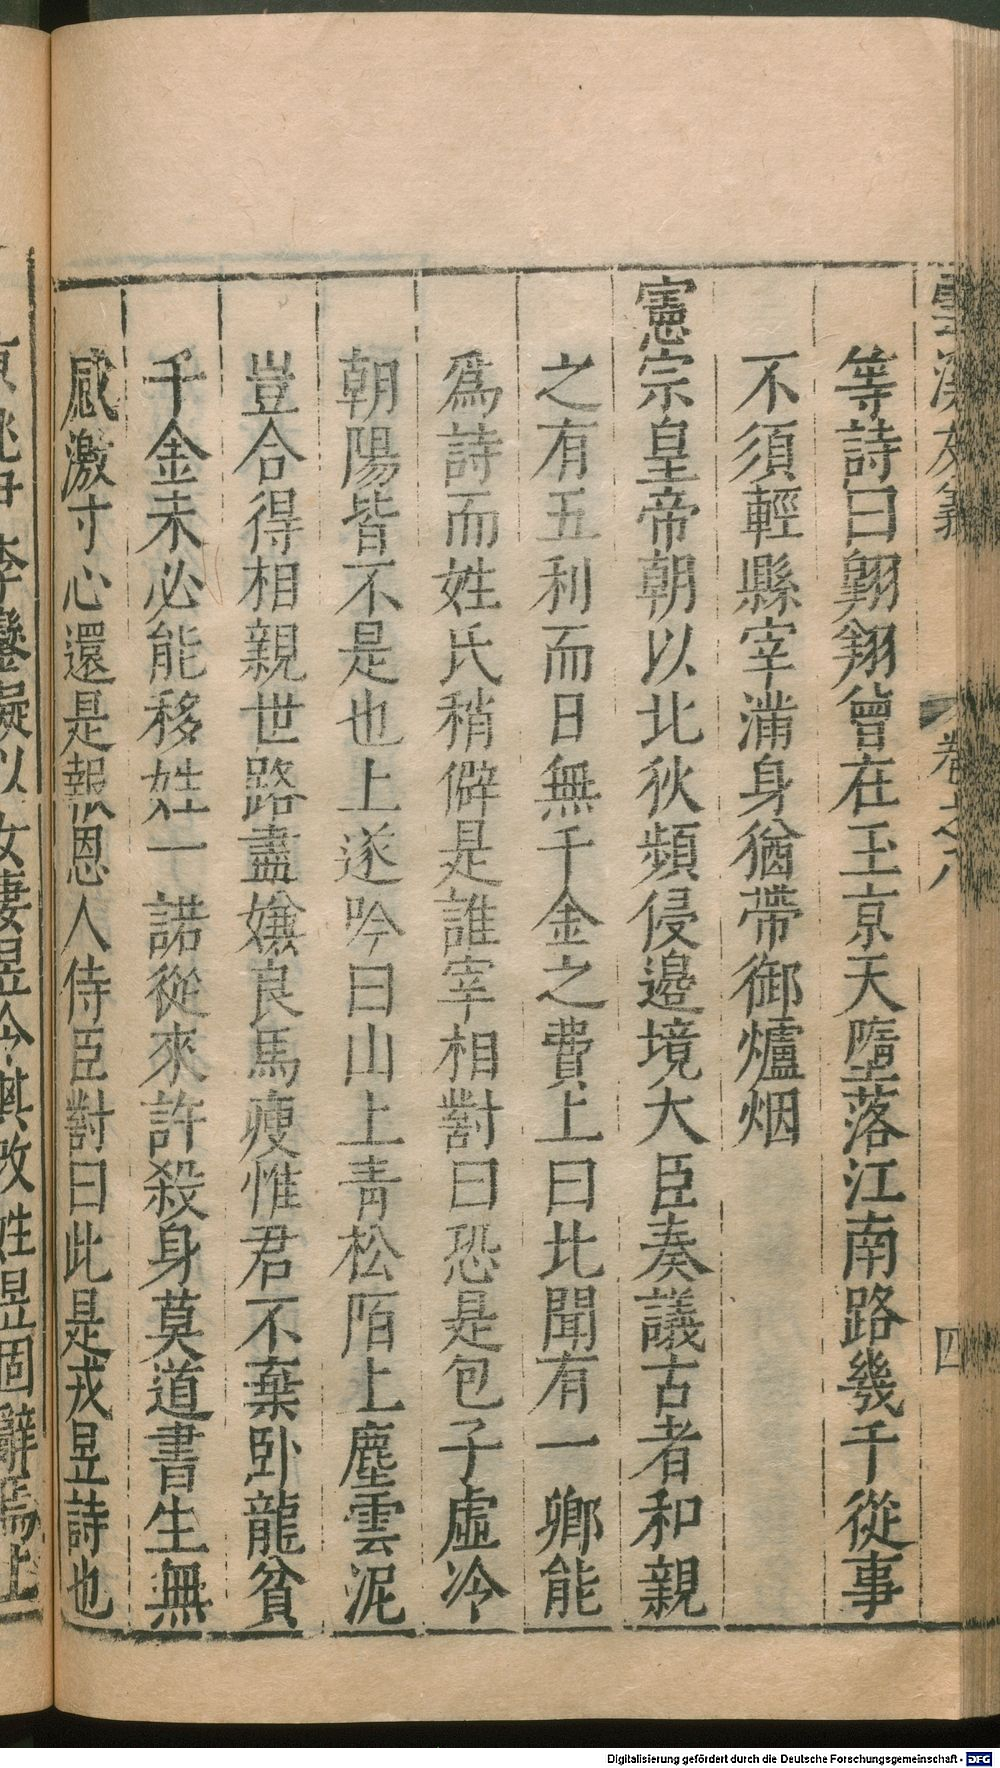 雲溪友議
卷之八
四
等詩曰翺翔曾在玉京天墮落江南路幾千從事
不須輕縣宰滿身猶帶御爐烟
憲宗皇帝朝以北狄頻侵邊境大臣奏議古者和親
之有五利而日無千金之費上曰比聞有一卿能
爲詩而姓氏稍僻是誰宰相對曰恐是包子虛冷
朝陽皆不是也上遂吟曰山上青松陌上塵雲泥
豈合得相親世路盡嫌良馬瘦惟君不棄卧龍貧
千金未必能移姓一諾從來許殺身莫道書生無
感激寸心還是報恩人侍臣對曰此是戎昱詩也
京兆尹李鑾擬以女妻昱令其改姓昱固辭焉上
Digitalisierung gefördert durch die Deutsche Forschungsgemeinschaft - DFG